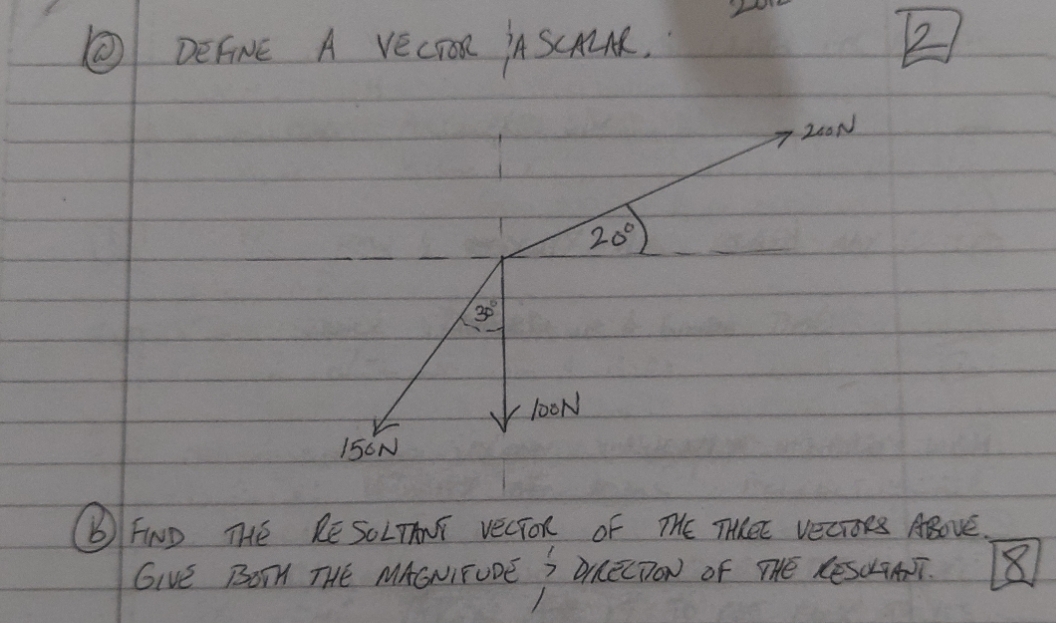 (a) DEFINE A VECTOR & A SCALAR. [2]
200N
20°
30°
100N
150N
(b) FIND THE RESULTANT VECTOR OF THE THREE VECTORS ABOVE.
GIVE BOTH THE MAGNITUDE & DIRECTION OF THE RESULTANT. [8]